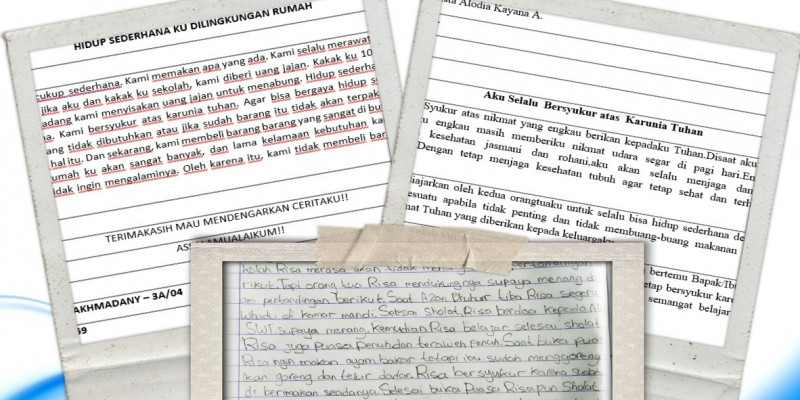 HIDUP SEDERHANA KU DILINGKUNGAN RUMAH
cukup sederhana. Kami memakan apa yang ada. Kami selalu merawat
jika aku dan kakak ku sekolah, kami diberi uang jajan. Kakak ku 10
kadang kami menyisakan uang jajan untuk menabung. Hidup sederha
na. Kami bersyukur atas karunia tuhan. Agar bisa bergaya hidup s
ang tidak dibutuhkan atau jika sudah barang itu tidak akan terpak
hal itu. Dan sekarang, kami membeli barang barang yang sangat di bu
umah ku akan sangat banyak, dan lama kelamaan kebutuhan ka
idak ingin mengalaminya. Oleh karena itu, kami tidak membeli bar
TERIMAKASIH MAU MENDENGARKAN CERITAKU!!
AKHMADANY – 3A/04
Alodia Kayana A.
Aku Selalu Bersyukur atas Karunia Tuhan
Syukur atas nikmat yang engkau berikan kepadaku Tuhan.Disaat aku
u engkau masih memberiku nikmat udara segar di pagi hari.En
kesehatan jasmani dan rohani,aku akan selalu menjaga dan
Dengan tetap menjaga kesehatan tubuh agar tetap sehat dan terh
ajarkan oleh kedua orangtuaku untuk selalu bisa hidup sederhana de
esuatu apabila tidak penting dan tidak membuang-buang makanan
mat Tuhan yang diberikan kepada keluargaku
bertemu Bapak/Ibu
etap bersyukur kare
semangat belajar
Risa merasa akan tidak
rikut. Tapi orang tua Risa mendukungnya supaya menang d
am pertandingan berikut. Saat Azan Dhuhur tiba Risa segera
Whudu di kamar mandi. Selesai Sholat, Risa berdoa kepada Al
SWT supaya menang. Kemudian Risa belajar selesai sholat
Risa juga puasa penuh dan teraweh penuh. Saat buka puas
Risa ngin makan ayam bakar tetapi ibu sudah menggoreng
ikan goreng dan telur dadar. Risa bersyukur karena sudah
di berimakan seadanya. Selesai buka Puasa Risa pun Sholat